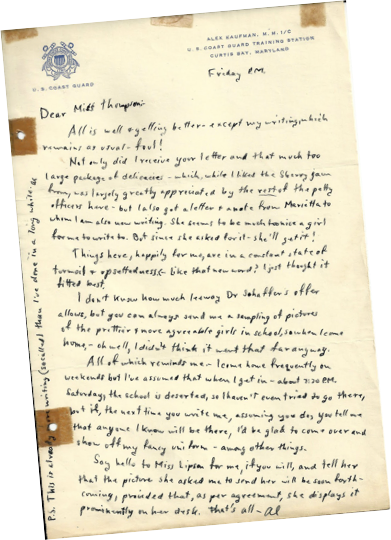 U.S. COAST GUARD
ALEX KAUFMAN, M. M. 1/C
U. S. COAST GUARD TRAINING STATION
CURTIS BAY, MARYLAND
Friday P.M.
Dear Thompson
All is well & getting better - except my writing, which
remains as usual - foul!
Not only did I receive your letter and that much too
large package of delicacies - which, while I liked the Sherry jam
from, was largely greatly appreciated by the rest of the petty
officers here - but I also got a letter & a note from Marietta to
whom I am also now writing. She seems to be much too nice a girl
for me to write to. But since she asked for it - she'll get it!
Things here, happily for me, are in a constant state of
turmoil & upsettedness (- Like that new word? I just thought it
fitted best.
I don't know how much leeway Dr Schaffer's offer
allows, but you can always send me a sampling of pictures
of the prettier & more agreeable girls in school, so when I come
home, - oh well, I didn't think it went that far anyway.
All of which reminds me - I come home frequently on
weekends but I've assumed that when I get in - about 2:30 P.M.
Saturdays, the school is deserted, so I haven't even tried to go there,
but if, the next time you write me, assuming you do, you tell me
that anyone I know will be there, I'd be glad to come over and
show off my fancy uniform - among other things.
Say hello to Miss Lipson for me, if you will, and tell her
that the picture she asked me to send her will be soon forth-
coming, provided that, as per agreement, she displays it
prominently on her desk. That's all - Al
P.S. This is already more writing (so called) than I've done in a long while